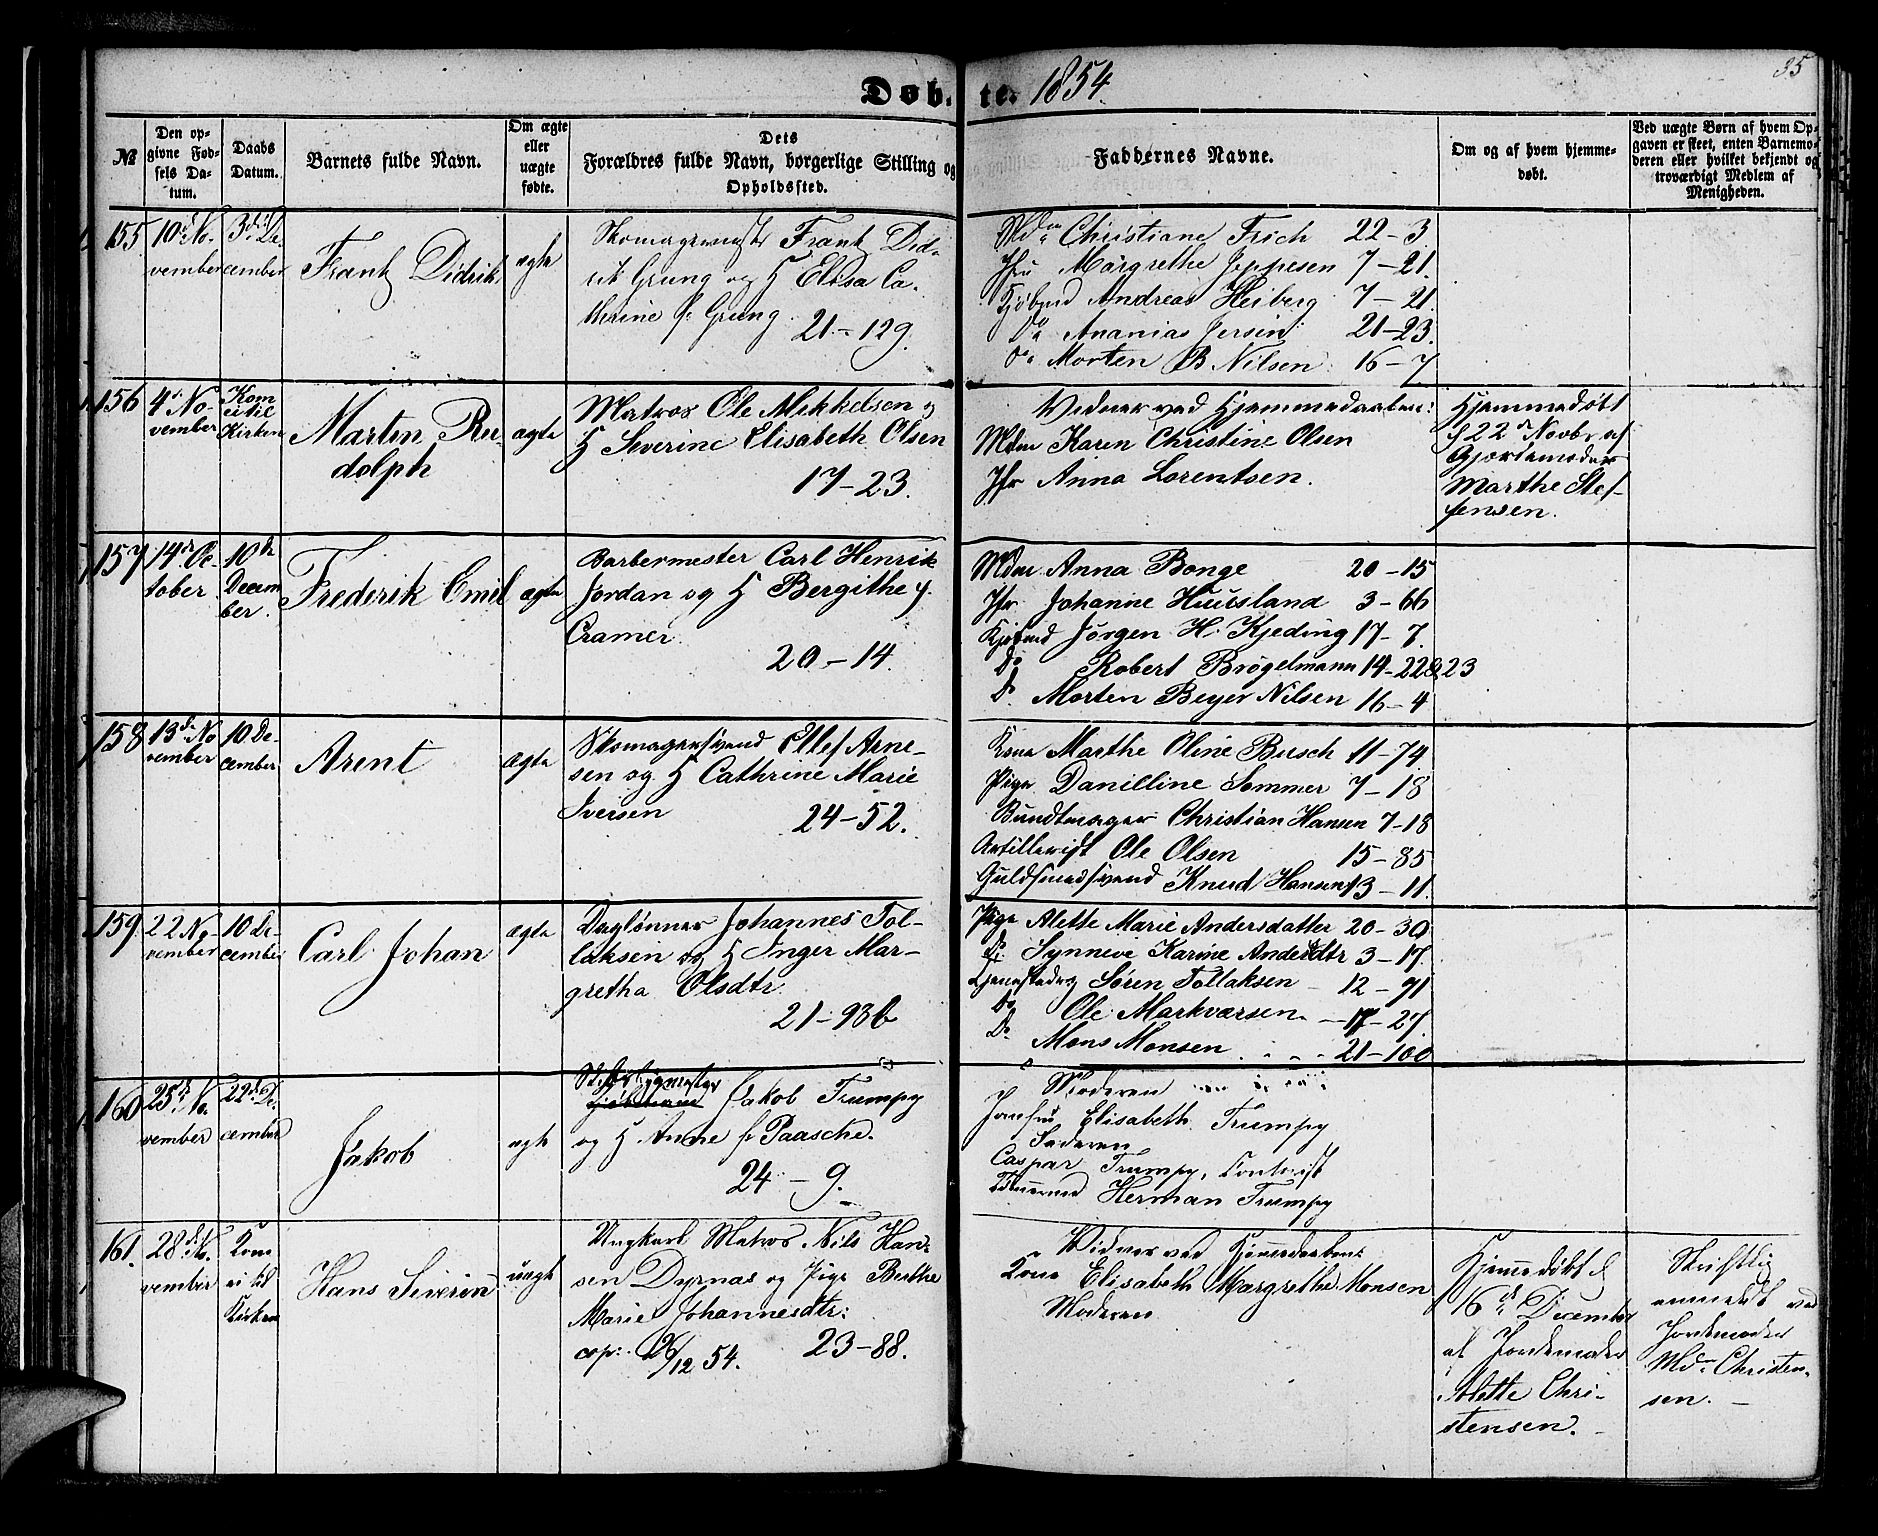 Døb- te. 1854.
35
No
Den opgivne Fødsels Datum.
Daabs Datum.
Barnets fulde Navn.
Om ægte eller uægte fødte.
Dets Forældres fulde Navn, borgerlige Stilling og Opholdssted.
Faddernes Navne.
Om og af hvem hjemmedøbt.
Ved uægte Børn af hvem Opgaven er skeet, enten Barnemoderen eller hvilket bekjendt og troværdigt Medlem af Menigheden.
155
10de No-
vember
3die De-
cember
Frantz Didrik
ægte
Skomagermester Frantz Did-
rik Grung og H Elisa Ca-
therine f. Grung.
21-129.
Mdm Christiane Frich 22-3
Jfru Margrethe Jeppesen 7-21.
Kjøbmd Andreas Heiberg 7-21.
Do Ananias Jersin 21-23.
Do Morten B Nilsen 16-7
156
4de No-
vember
Kom
ei til
Kirken
Martin Ru-
dolph
ægte
Matros Ole Mikkelsen og
H Severine Elisabeth Olsen
17-23.
Vidner ved Hjemmedaaben:
Mdm Karen Christine Olsen
Jfr Anna Lorentsen.
Hjemmedøbt
d 22de Novbr af
Gjordemoder
Marthe Stef-
fensen.
157
14de Oc-
tober
10de
Decem
ber.
Frederik Emil
ægte
Barbermester Carl Henrik
Jordan og H Bergithe f.
Cramer.
20-14.
Mdm Anna Bonge 20-15
Jfr. Johanne Huusland 3-66
Kjøbmd Jørgen H. Kjeding 17-7.
Do Robert Brögelmann 14-22&23
Do Morten Beyer Nilsen 16-4
158
13de No
vember
10 De-
cember
Arent
ægte
Skomagersvend Ellef Arne-
sen og H Cathrine Marie
Iversen
24-52.
Kone Marthe Oline Busch 11-74.
Pige Danilline Sommer 7-18
Bundtmager Christian Hansen 7-18
Artillerist Ole Olsen 15-85
Guldsmedsvend Knud Hansen 13-11.
159.
22 No-
vember
10 De-
cember
Carl Johan
ægte
Daglønner Johannes Tol-
laksen og H Inger Mar-
gretha Olsdtr.
21-93b
Pige Alette Marie Andersdatter 20-30
Do Synneve Karine Andersdtr 3-17
Tjenestedrg Søren Tollaksen - 12-91
Do Ole Markvarsen. - 17-27.
Do Mons Monsen . . . 21-100
160
25de No-
vember
22de De-
cember
Jakob
ægte
Skibsbygmester
Jakob Trumpy
og H Anne f. Paasche.
24-9.
Moderen
Jomfru Elisabeth Trumpy
Faderen
Caspar Trumpy, Contorist
Herman Trumpy
161.
28de No-
vember
Kom
ei til
Kirken
Hans Severin
uægte
Ungkarl Matros Nils Han-
sen Dyrnas og Pige Berthe
Marie Johannesdtr:
cop: 26/12 54. 23-88.
Vidner ved Hjemmedaaben:
Kone Elisabeth Margrethe Monsen
Moderen
Hjemmedøbt d
16de December
af Jordemoder
Alette Chri-
stensen.
Skriftlig
anmeldt ved
Jordemoder
Mdm Christen-
sen.